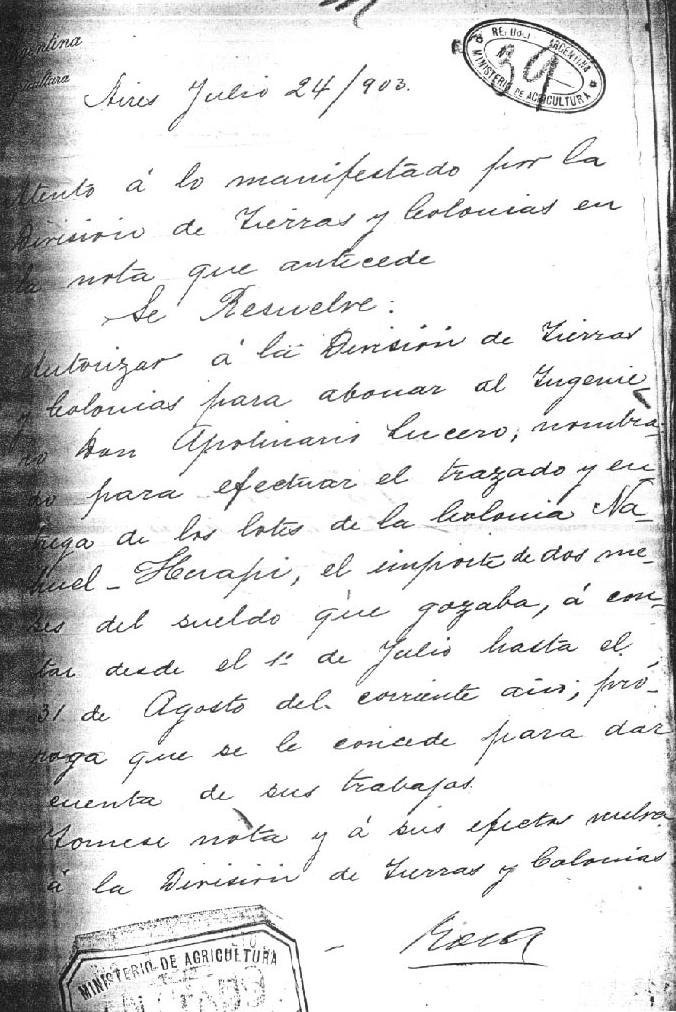 Argentina
REPUBLICA ARGENTINA
MINISTERIO DE AGRICULTURA
39
Aires Julio 24/903.
Atento á lo manifestado por la
División de Tierras y Colonias en
la nota que antecede
Se Resuelve:
Autorizar á la División de Tierras
y Colonias para abonar al Ingenie
ro Don Apolinario Lucero, nombra-
do para efectuar el trazado y en
trega de los lotes de la Colonia Na-
huel-Huapi, el importe de dos me-
ses del sueldo que gozaba, á con-
tar desde el 1º de Julio hasta el
31 de Agosto del corriente año; pró-
rroga que se le concede para dar
cuenta de sus trabajos.
Tómese nota y á sus efectos vuelva
á la División de Tierras y Colonias
MINISTERIO DE AGRICULTURA